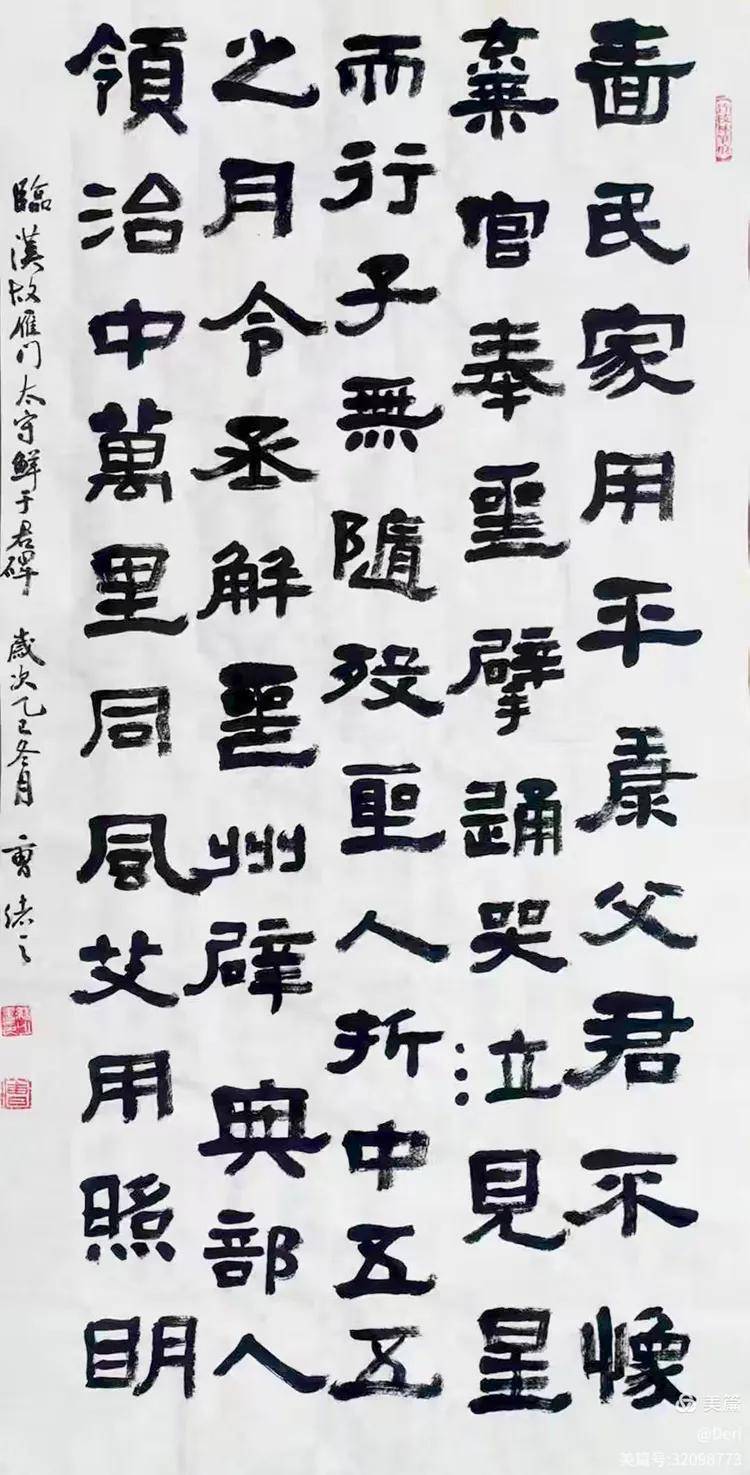 嗇民家用平康父君不
棄官奉喪擗踊哭泣見星
而行子無隨殁聖人折中五五
之月令丞解喪州辟典部入
領治中萬里同風艾用照明
臨漢故雁门太守鮮于君碑 歲次乙巳冬月 曹緒之
美篇
@Deri
美篇号:32098773